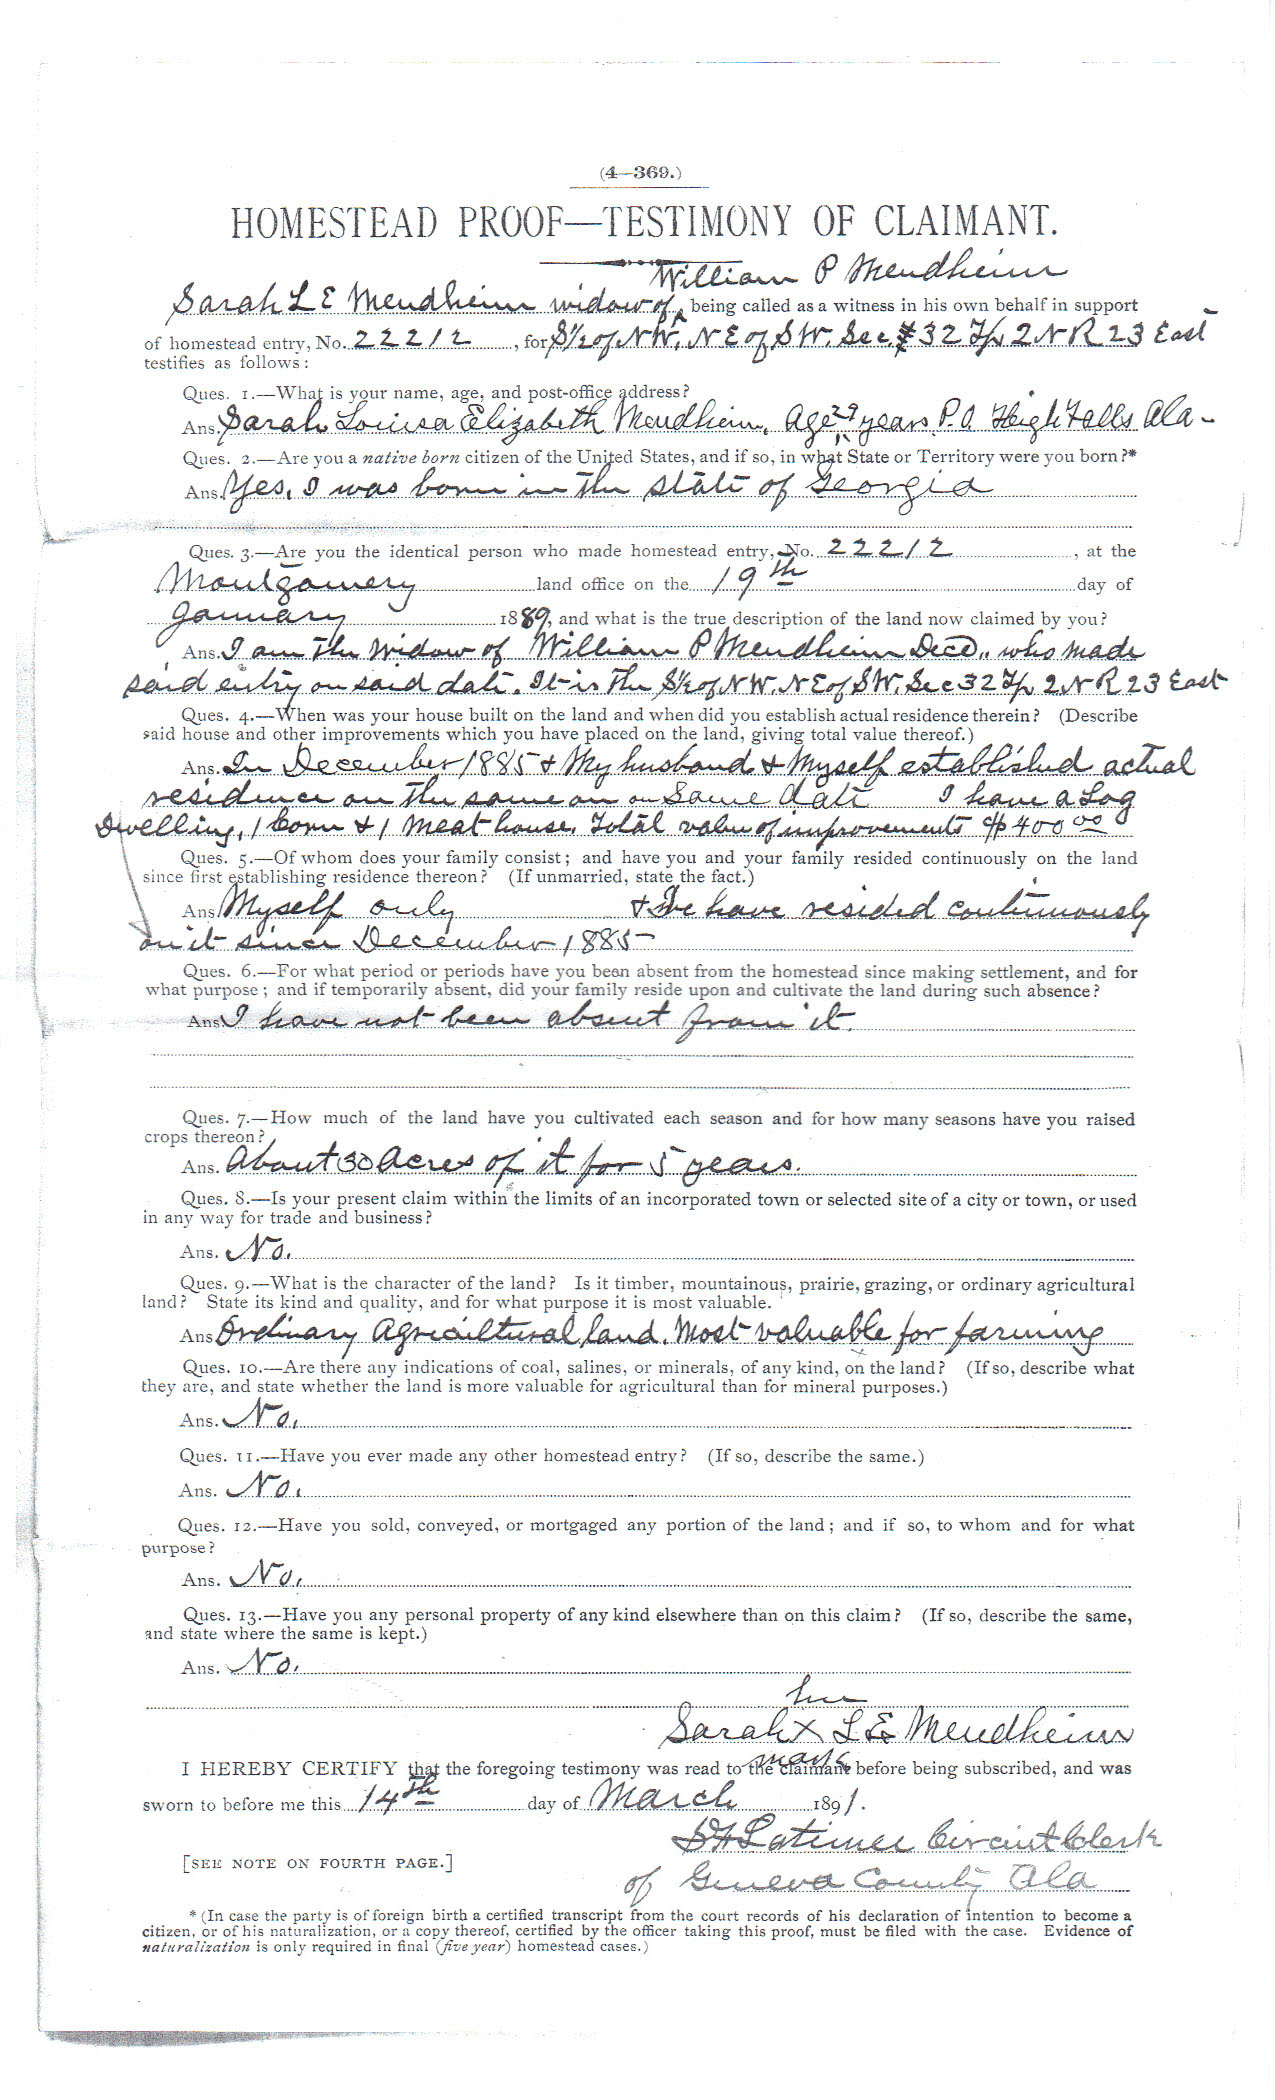 (4—369.)
HOMESTEAD PROOF—TESTIMONY OF CLAIMANT.
William P Mendheim
Sarah L E Mendheim widow of ^ being called as a witness in his own behalf in support
of homestead entry, No. 22212, for S½ of NW, NE of SW, Sec 32 Tp 2 N R 23 East
testifies as follows:
Ques. 1.—What is your name, age, and post-office address?
Ans. Sarah Louisa Elizabeth Mendheim, Age 29 years P.O. High Falls Ala-
Ques. 2.—Are you a native born citizen of the United States, and if so, in what State or Territory were you born?*
Ans. Yes, I was born in the state of Georgia
Ques. 3.—Are you the identical person who made homestead entry, No. 22212, at the
Montgomery land office on the 19th day of
January 1889, and what is the true description of the land now claimed by you?
Ans. I am the widow of William P Mendheim Decd., who made
said entry on said date. It is the S½ of NW, NE of SW, Sec 32 Tp 2 N R 23 East
Ques. 4.—When was your house built on the land and when did you establish actual residence therein? (Describe
said house and other improvements which you have placed on the land, giving total value thereof.)
Ans. In December 1885 & My husband & Myself established actual
residence on the same on on Same date I have a Log
Dwelling, 1 Corn & 1 Meat house. Total value of improvements $400 00
Ques. 5.—Of whom does your family consist; and have you and your family resided continuously on the land
since first establishing residence thereon? (If unmarried, state the fact.)
Ans. Myself only & We have resided continuously
on it since December 1885
Ques. 6.—For what period or periods have you been absent from the homestead since making settlement, and for
what purpose; and if temporarily absent, did your family reside upon and cultivate the land during such absence?
Ans. I have not been absent from it.
Ques. 7.—How much of the land have you cultivated each season and for how many seasons have you raised
crops thereon?
Ans. About 30 Acres of it for 5 years.
Ques. 8.—Is your present claim within the limits of an incorporated town or selected site of a city or town, or used
in any way for trade and business?
Ans. No.
Ques. 9.—What is the character of the land? Is it timber, mountainous, prairie, grazing, or ordinary agricultural
land? State its kind and quality, and for what purpose it is most valuable.
Ans. Ordinary Agricultural land. Most valuable for farming
Ques. 10.—Are there any indications of coal, salines, or minerals, of any kind, on the land? (If so, describe what
they are, and state whether the land is more valuable for agricultural than for mineral purposes.)
Ans. No.
Ques. 11.—Have you ever made any other homestead entry? (If so, describe the same.)
Ans. No.
Ques. 12.—Have you sold, conveyed, or mortgaged any portion of the land; and if so, to whom and for what
purpose?
Ans. No.
Ques. 13.—Have you any personal property of any kind elsewhere than on this claim? (If so, describe the same,
and state where the same is kept.)
Ans. No.
her
Sarah X L E Mendheim
mark
I HEREBY CERTIFY that the foregoing testimony was read to the claimant before being subscribed, and was
sworn to before me this 14th day of March 1891.
Latimer Circuit Clerk
of Geneva County Ala
[SEE NOTE ON FOURTH PAGE.]
* (In case the party is of foreign birth a certified transcript from the court records of his declaration of intention to become a
citizen, or of his naturalization, or a copy thereof, certified by the officer taking this proof, must be filed with the case. Evidence of
naturalization is only required in final (five year) homestead cases.)